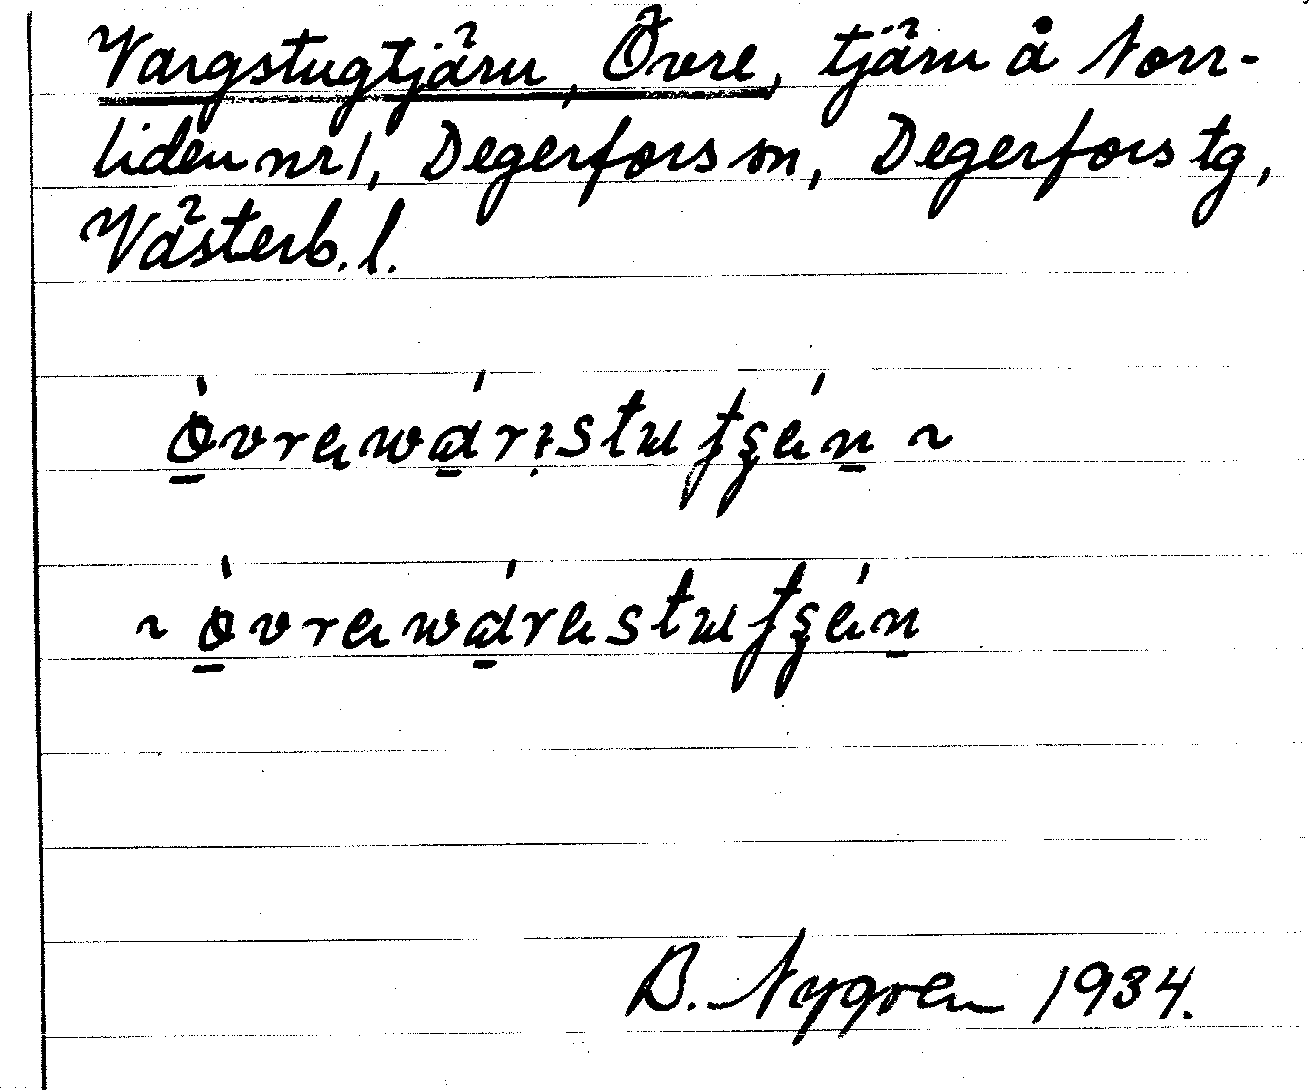 Vargstugtjärn, Övre, tjärn å Norr-
liden nr 1, Degerfors sn, Degerfors tg,
Västerb. l.
B. Nygren 1934.